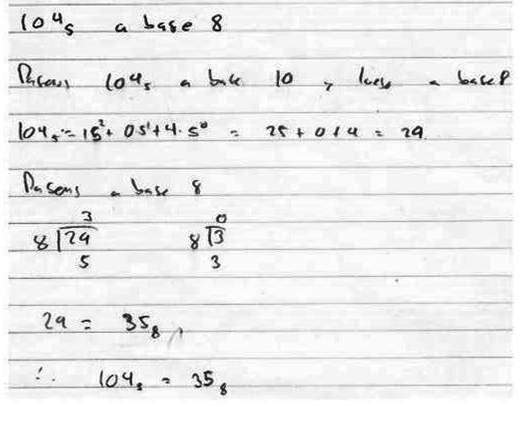 104₅ a base 8
Pasamos 104₅ a base 10 y luego a base 8
104₅ = 1·5² + 0·5¹ + 4·5⁰ = 25 + 0 + 4 = 29
Pasamos a base 8
3 0
8 29 8 3
5 3
29 = 35₈
∴ 104₅ = 35₈